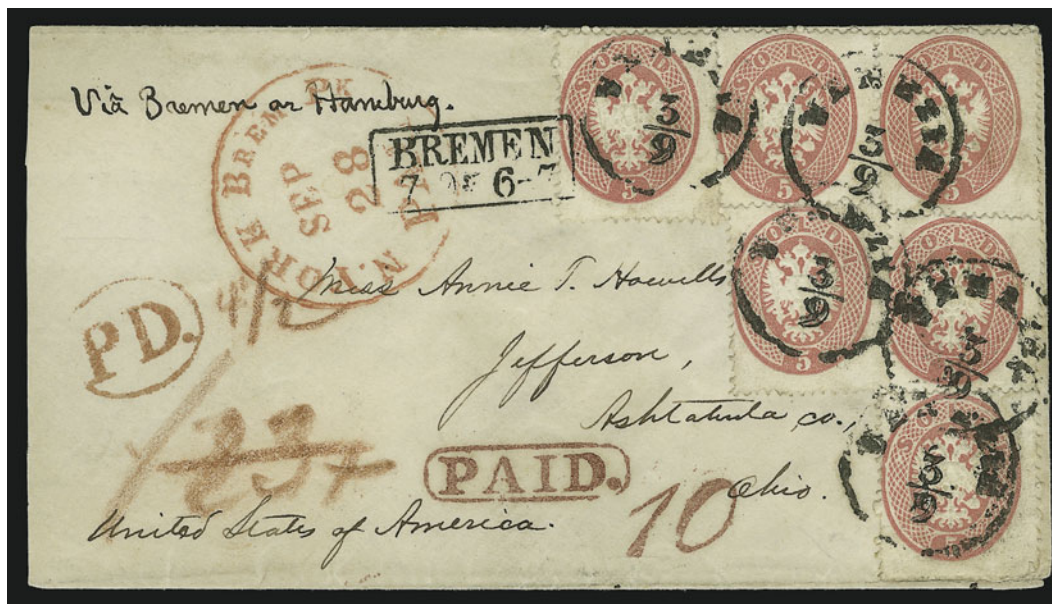 Viā Bremen or Hamburg.
N. YORK BREM. PK
SEP
28
PAID
BREMEN
7 6-7
SOLDI
5
SOLDI
5
SOLDI
5
3/9
3/9
SOLDI
5
SOLDI
3/9
3/9
SOLDI
5
3/9
PD.
Miss Annie T. Howells
Jefferson,
Ashtabula co.,
Ohio.
PAID.
10
United States of America.